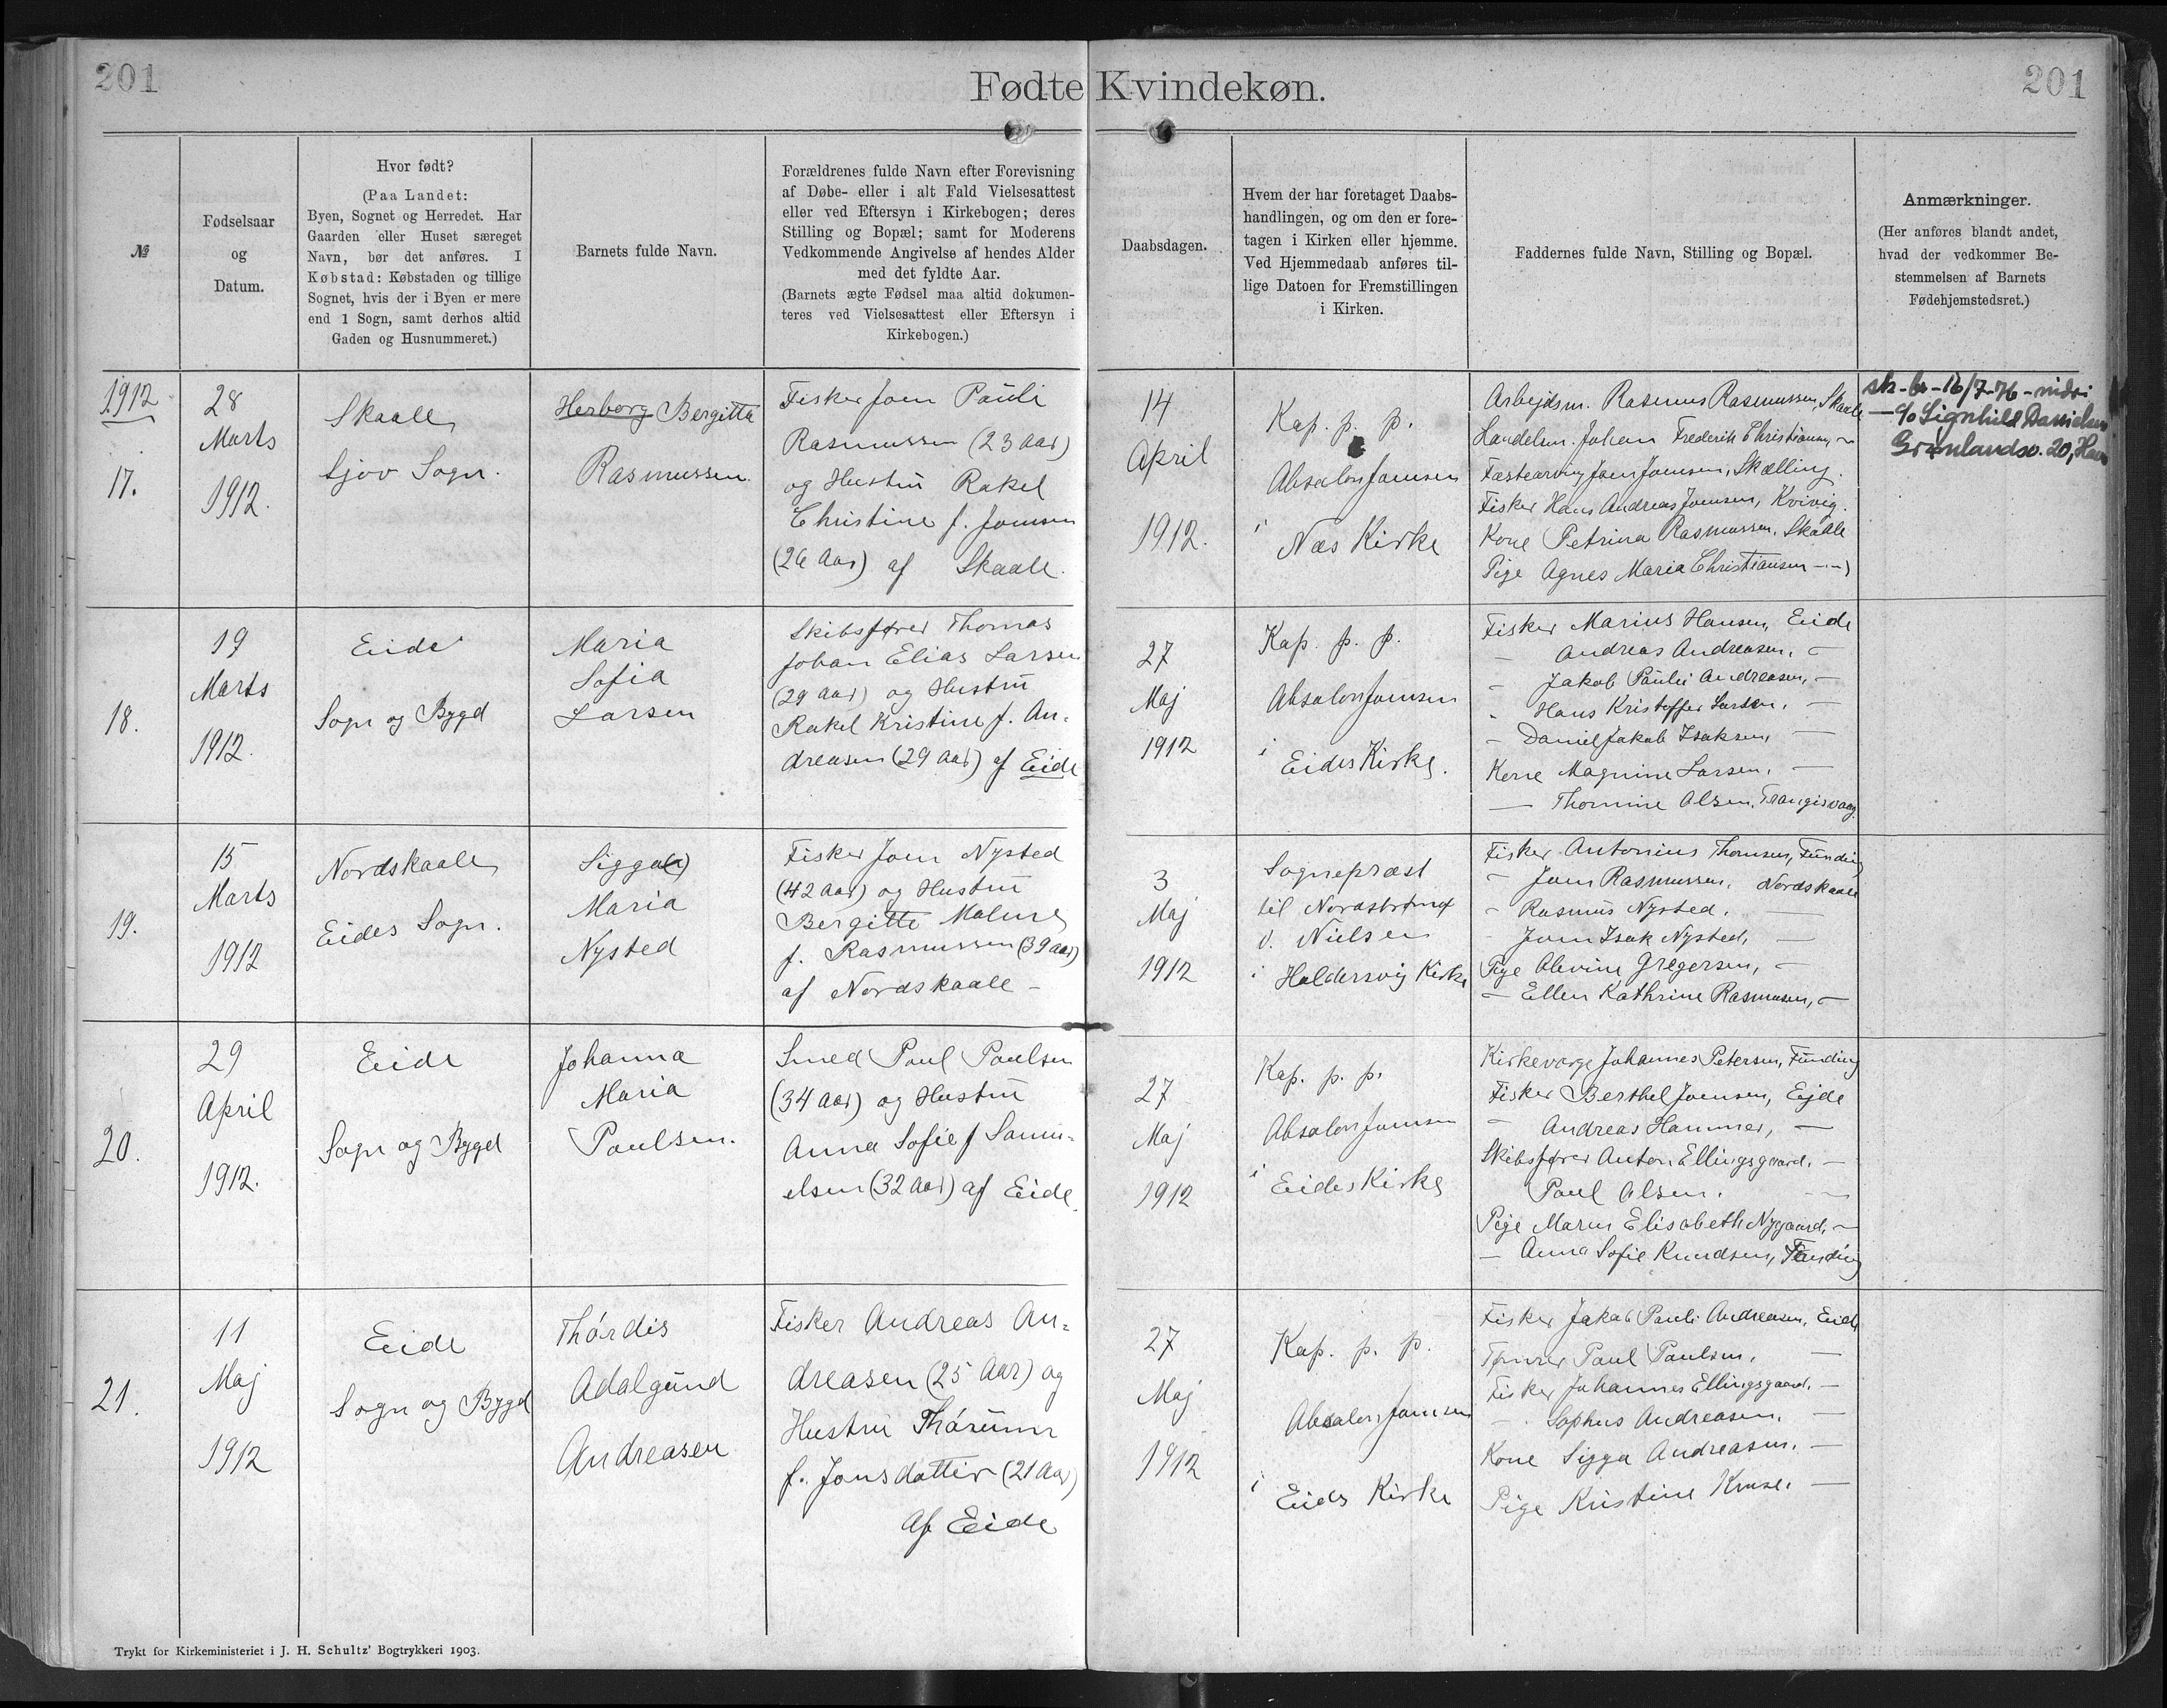 201
Fødte Kvindekøn.
201
№
Fødselsaar
og
Datum.
Hvor født?
(Paa Landet:
Byen, Sognet og Herredet. Har
Gaarden eller Huset særeget
Navn, bør det anføres. I
Købstad: Købstaden og tillige
Sognet, hvis der i Byen er mere
end 1 Sogn, samt derhos altid
Gaden og Husnummeret.)
Barnets fulde Navn.
Forældrenes fulde Navn efter Forevisning
af Døbe- eller i alt Fald Vielsesattest
eller ved Eftersyn i Kirkebogen; deres
Stilling og Bopæl; samt for Moderens
Vedkommende Angivelse af hendes Alder
med det fyldte Aar.
(Barnets ægte Fødsel maa altid dokumen-
teres ved Vielsesattest eller Eftersyn i
Kirkebogen.)
Daabsdagen.
Hvem der har foretaget Daabs-
handlingen, og om den er fore-
tagen i Kirken eller hjemme.
Ved Hjemmedaab anføres til-
lige Datoen for Fremstillingen
i Kirken.
Faddernes fulde Navn, Stilling og Bopæl.
Anmærkninger.
(Her anføres blandt andet,
hvad der vedkommer Be-
stemmelsen af Barnets
Fødehjemstedsret.)
1912
17.
28
Marts
1912.
Skaale
Sjov Sogn.
Herborg Bergitta
Rasmussen.
Fisker Joen Pauli
Rasmussen (23 Aar)
og Hustru Rakel
Christine f. Joensen
(26 Aar) af Skaale.
14
April
1912.
Kap. p. p.
Absalon Joensen
i Næs Kirke
Arbejdsm. Rasmus Rasmussen, Skaale
Handelsm. Johan Frederik Christiansen, —
Joen Joensen, Skælling.
Fisker Hans Andreas Joensen, Kvivig.
Kone Petrina Rasmussen, Skaale
Pige Agnes Maria Christiansen — —)
16/7-76
c/o Signhild Danielsen
Grønlandsv. 20, Havn
18.
19
Marts
1912.
Eide
Sogn og Bygd
Maria
Sofia
Larsen
Skibsfører Thomas
Johan Elias Larsen
(29 Aar) og Hustru
Rakel Kristine f. An-
dreasen (29 Aar) af Eide
27
Maj
1912
Kap. p. p.
Absalon Joensen
i Eides Kirke.
Fisker Marius Hansen, Eide
— Andreas Andreasen, —
— Jakob Pauli Andreasen, —
— Hans Kristoffer Larsen, —
— Daniel Jakob Isaksen, —
Kone Magnine Larsen, —
— Thomine Olsen, Trangisvaag.
19.
15
Marts
1912
Nordskaale
Eides Sogn.
Sigga(a)
Maria
Nysted
Fisker Joen Nysted
(42 Aar) og Hustru
Bergitte Malene
f. Rasmussen (39 Aar)
af Nordskaale -
3
Maj
1912
Sognepræst
til Nordstrømø
v. Nielsen
i Haldersvig Kirke
Fisker Antonius Thomsen, Funding
— Joen Rasmussen, Nordskaale
— Rasmus Nysted, —
— Joen Isak Nysted, —
Pige Olevine Gregersen, —
— Ellen Kathrine Rasmussen, —
20.
29
April
1912.
Eide
Sogn og Bygd
Johanna
Maria
Poulsen.
Smed Poul Poulsen
(34 Aar) og Hustru
Anna Sofie f Samu-
elsen (32 Aar) af Eide.
27
Maj
1912
Kap. p. p.
Absalon Joensen
i Eides Kirke
Kirkeværge Johannes Petersen, Funding
Fisker Berthel Joensen, Ejde
— Andreas Hammer, —
Skibsfører Anton Ellingsgaard, —
Poul Olsen. — —
Pige Maren Elisabeth Nygaard, —
— Anna Sofie Knudsen, Funding
21.
11
Maj
1912
Eide
Sogn og Bygd
Thórdis
Adalgund
Andreasen
Fisker Andreas An-
dreasen (25 Aar) og
Hustru Thórunn
f. Jonsdotter (21 Aar)
af Eide
27
Maj
1912
Kap. p. p.
Absalon Joensen
i Eides Kirke
Fisker Jakob Pauli Andreasen, Eide
Tømrer Poul Poulsen, —
Fisker Johannes Ellingsgaard, —
— Sophus Andreasen, —
Kone Sigga Andreasen, —
Pige Kristine Kruse, —
Trykt for Kirkeministeriet i J. H. Schultz' Bogtrykkeri 1903.